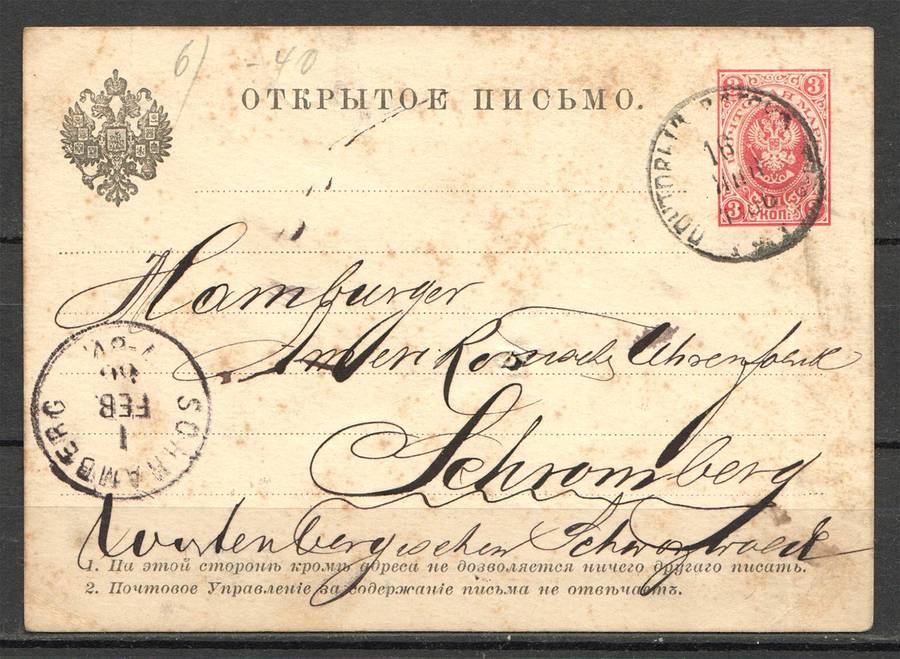 6) - 40
ОТКРЫТОЕ ПИСЬМО.
3 3
3 КОП. 3
16
ЯНВ
Hamburger
Amerikanische Uhrenfabrik
Schramberg
Württenbergischen Schwarzwald
SCHRAMBERG
1
FEB.
7-8V.
1. На этой сторонѣ кромѣ адреса не дозволяется ничего другаго писать.
2. Почтовое Управленіе за содержаніе письма не отвѣчаетъ.